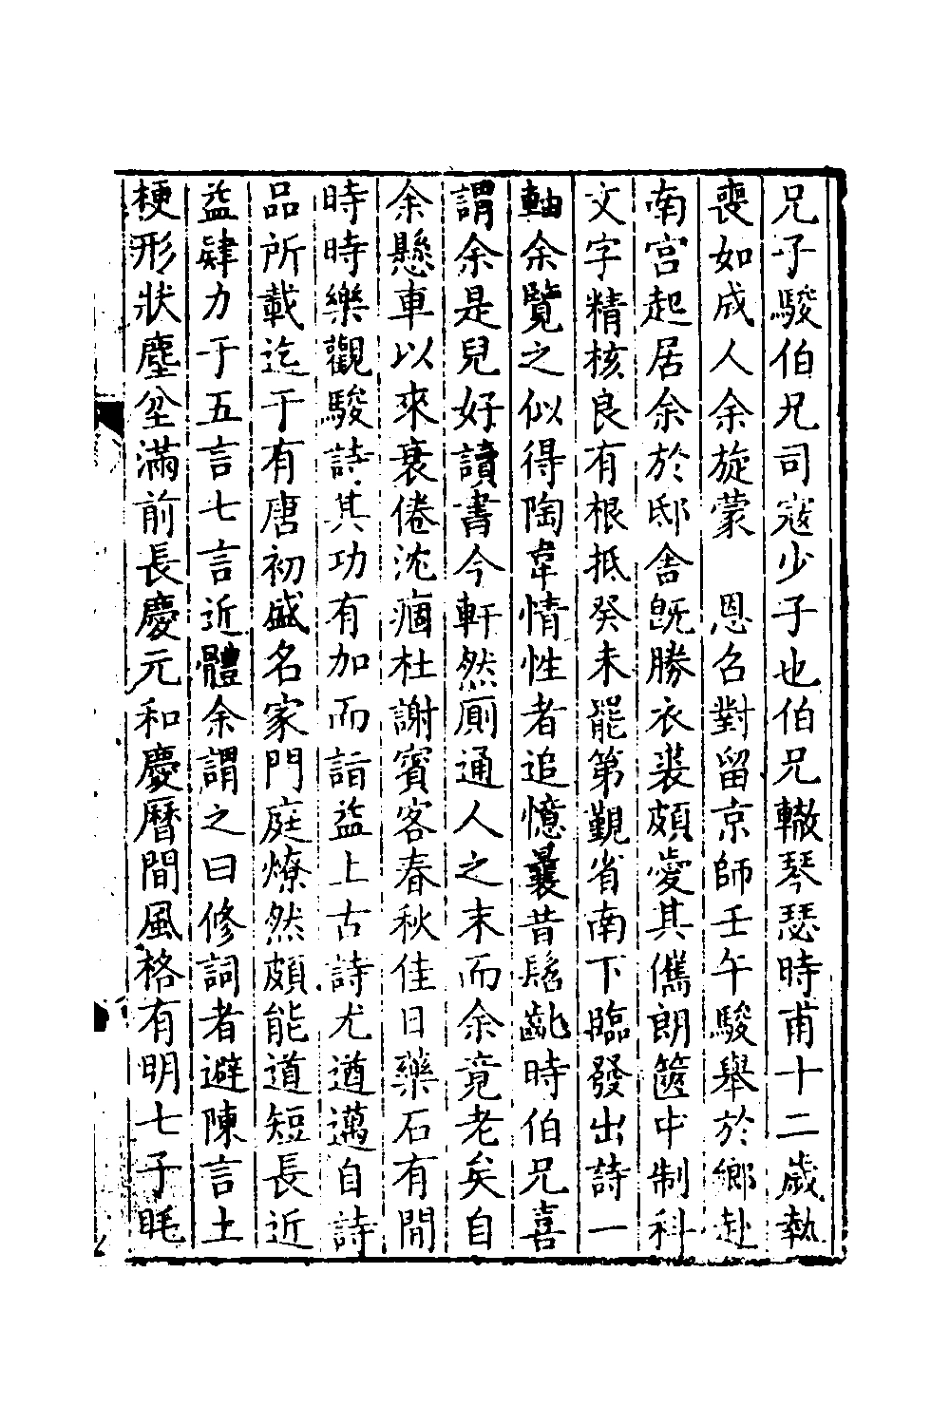 兄子駿伯兄司寇少子也伯兄轍琴瑟時甫十二歲執
喪如成人余旋蒙　恩召對留京師壬午駿舉於鄉赴
南宮起居余於邸舍旣勝衣裘頗愛其儁朗篋中制科
文字精核良有根抵癸未罷第覲省南下臨發出詩一
軸余覽之似得陶韋情性者追憶曩昔髫齔時伯兄喜
謂余是兒好讀書今軒然厠通人之末而余竟老矣自
余懸車以來衰倦沈痼杜謝賓客春秋佳日藥石有間
時時樂觀駿詩其功有加而詣益上古詩尤遒邁自詩
品所載迄于有唐初盛名家門庭燎然頗能道短長近
益肆力于五言七言近體余謂之曰修詞者避陳言土
梗形狀塵坌滿前長慶元和慶曆間風格有明七子眊